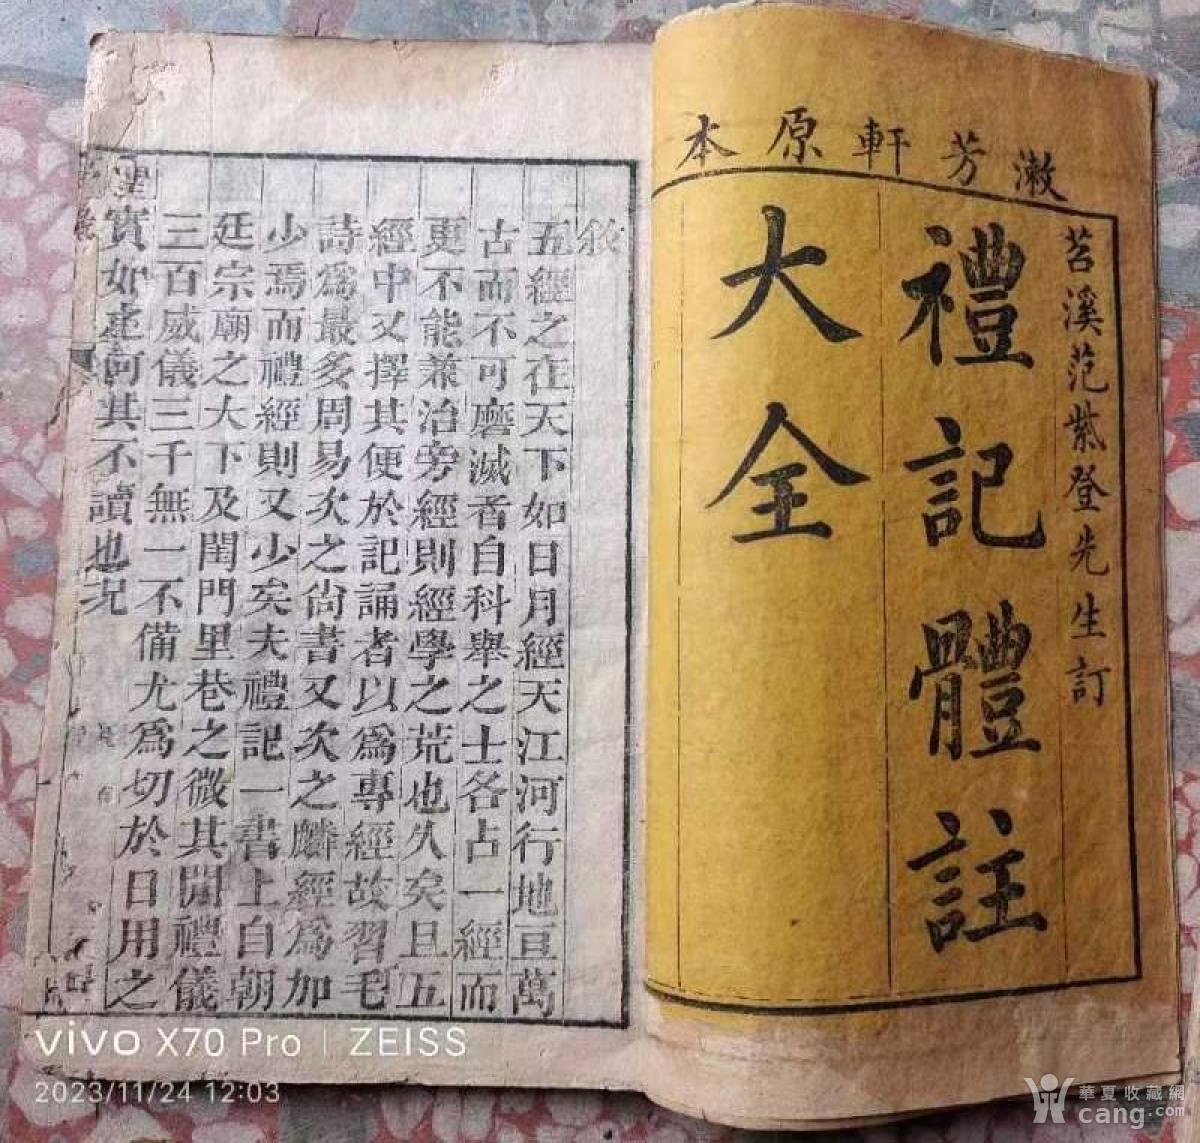 漱芳軒原本
苕溪范紫登先生訂
禮記體註
大全
敘
五經之在天下如日月經天江河行地亘萬
古而不可磨滅者自科舉之士各占一經而
更不能兼治旁經則經學之荒也久矣且五
經中又擇其便於記誦者以爲專經故習毛
詩爲最多周易次之尙書又次之麟經爲加
少焉而禮經則又少矣夫禮記一書上自朝
廷宗廟之大下及閨門里巷之微其間禮儀
三百威儀三千無一不備尤爲切於日用之
實如何其不讀也況
vivo X70 Pro | ZEISS
2023/11/24 12:03
華夏收藏網
cang.com